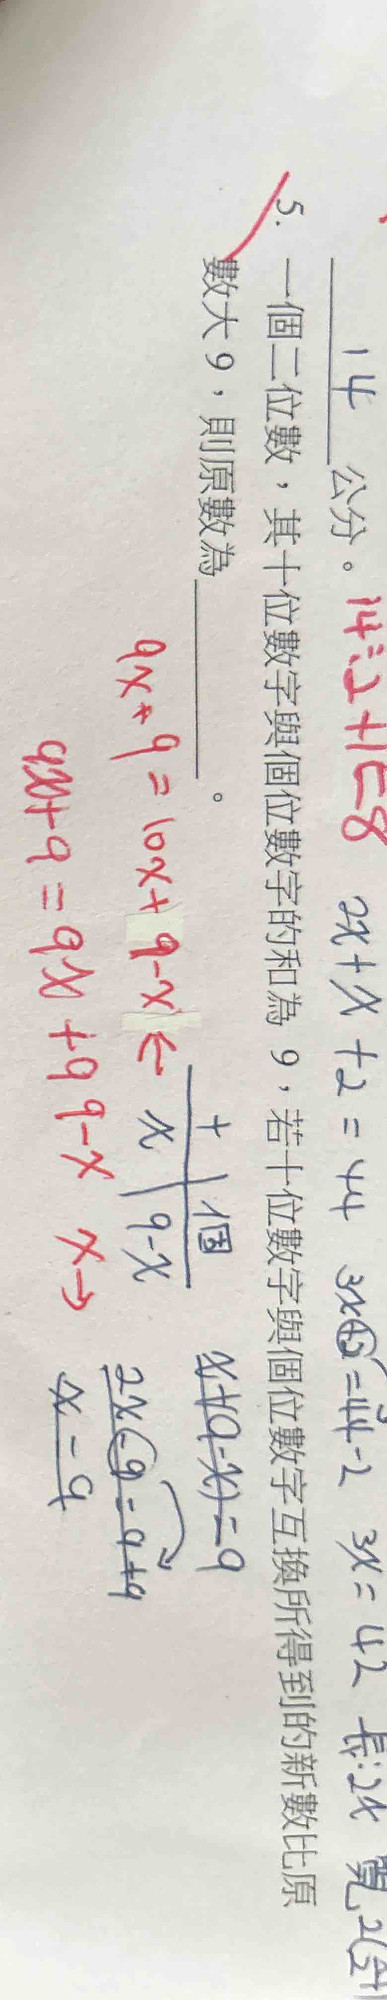 14 公分。 14÷2+1=8 2x+x+2=44 3x+2=44-2 3x=42 長:2x 寬
5. 一個二位數，其十位數字與個位數字的和為 9，若十位數字與個位數字互換所得到的新數比原
數大 9，則原數為________。
十 | 個
x | 9-x
x+(9-x)=9
2x-9=9+9
x=9
9x+9=10x+9-x ←
9x+9=9x+99-x x→